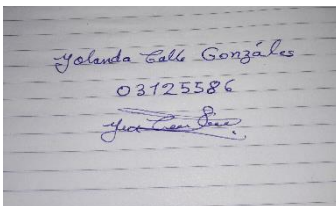 Yolanda Calle Gonzáles
03125586